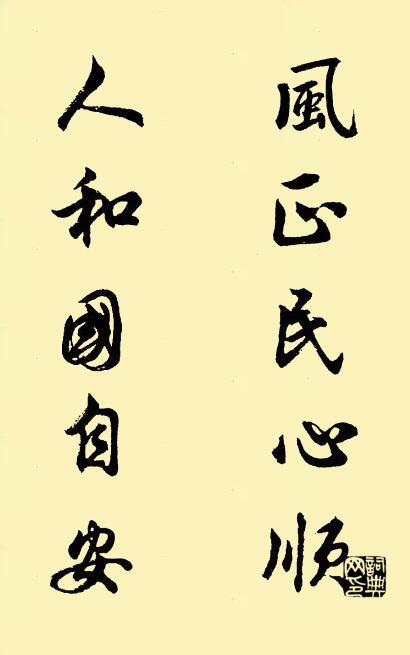 風正民心順
人和國自安
詞典网